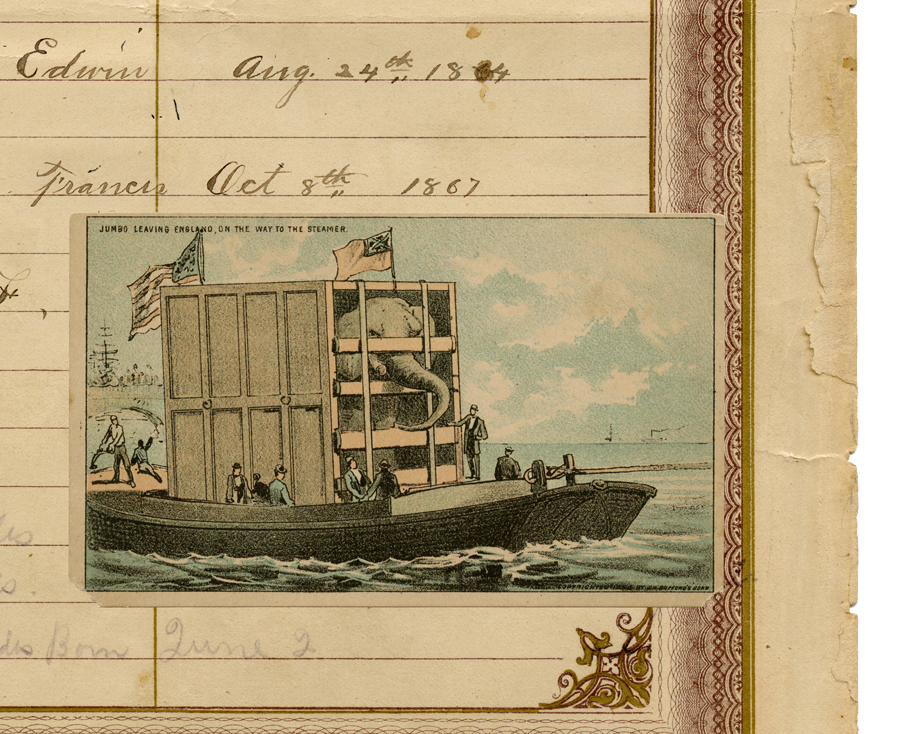 Edwin Aug. 24th 18
Francis Oct 8th 1867
JUMBO LEAVING ENGLAND, ON THE WAY TO THE STEAMER.
Born June 2